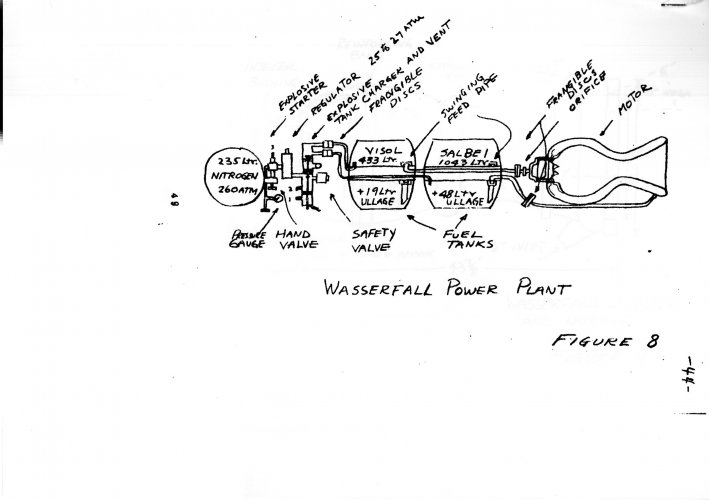 EXPLOSIVE
STARTER
REGULATOR 25 to 27 ATM
EXPLOSIVE
TANK CHARGER AND VENT
FRANGIBLE
DISCS
SWINGING
FEED PIPE
FRANGIBLE
DISCS
ORIFICE
MOTOR
235 Ltr.
NITROGEN
260 ATM
3
2
1
VISOL
433 Ltr.
+19 Ltr
ULLAGE
SALBEI
1043 Ltr.
+48 Ltr
ULLAGE
PRESSURE
GAUGE
HAND
VALVE
SAFETY
VALVE
FUEL
TANKS
49
WASSERFALL POWER PLANT
FIGURE 8
-44-